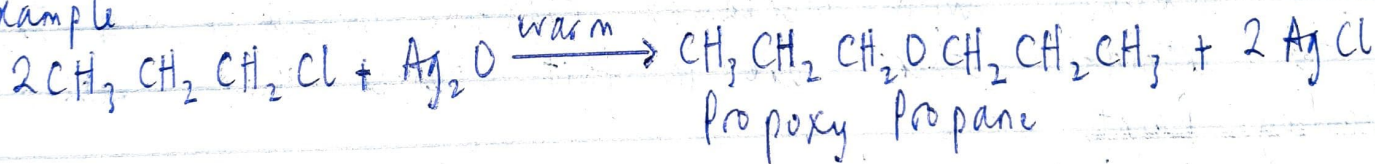 xample
2CH₃ CH₂ CH₂ Cl + Ag₂O warm → CH₃ CH₂ CH₂ O CH₂ CH₂ CH₃ + 2 Ag Cl
Propoxy Propane